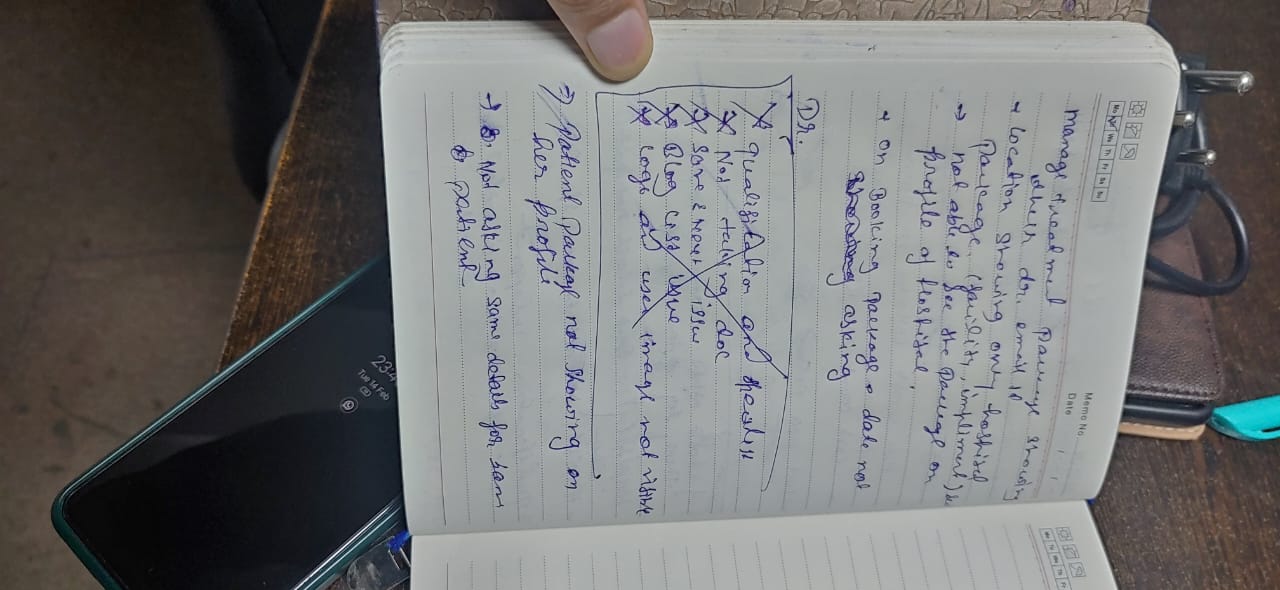 Mo Tu We Th Fr Sa Su
Memo No.
Date / /
manage treatment package showing
dr. email id
Location showing only hospital
package. (facility, impliment)
→ not able to see the package on
profile of Hospital.
on Booking package date not
asking
Dr.
qualification and
Not taking doc
Save & Next issue
Blog issue
logo and user image not visible
⇒ Patient package not showing on
her profile
→ Not asking same details for same
patient
23:4
Tue 14 Feb